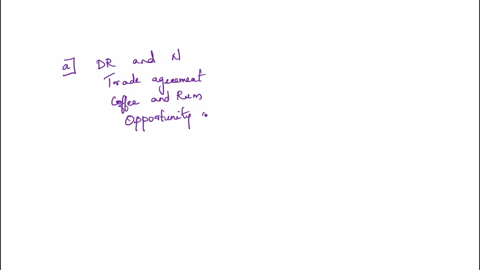 a] DR and N
Trade agreement
Coffee and Rum
Opportunity